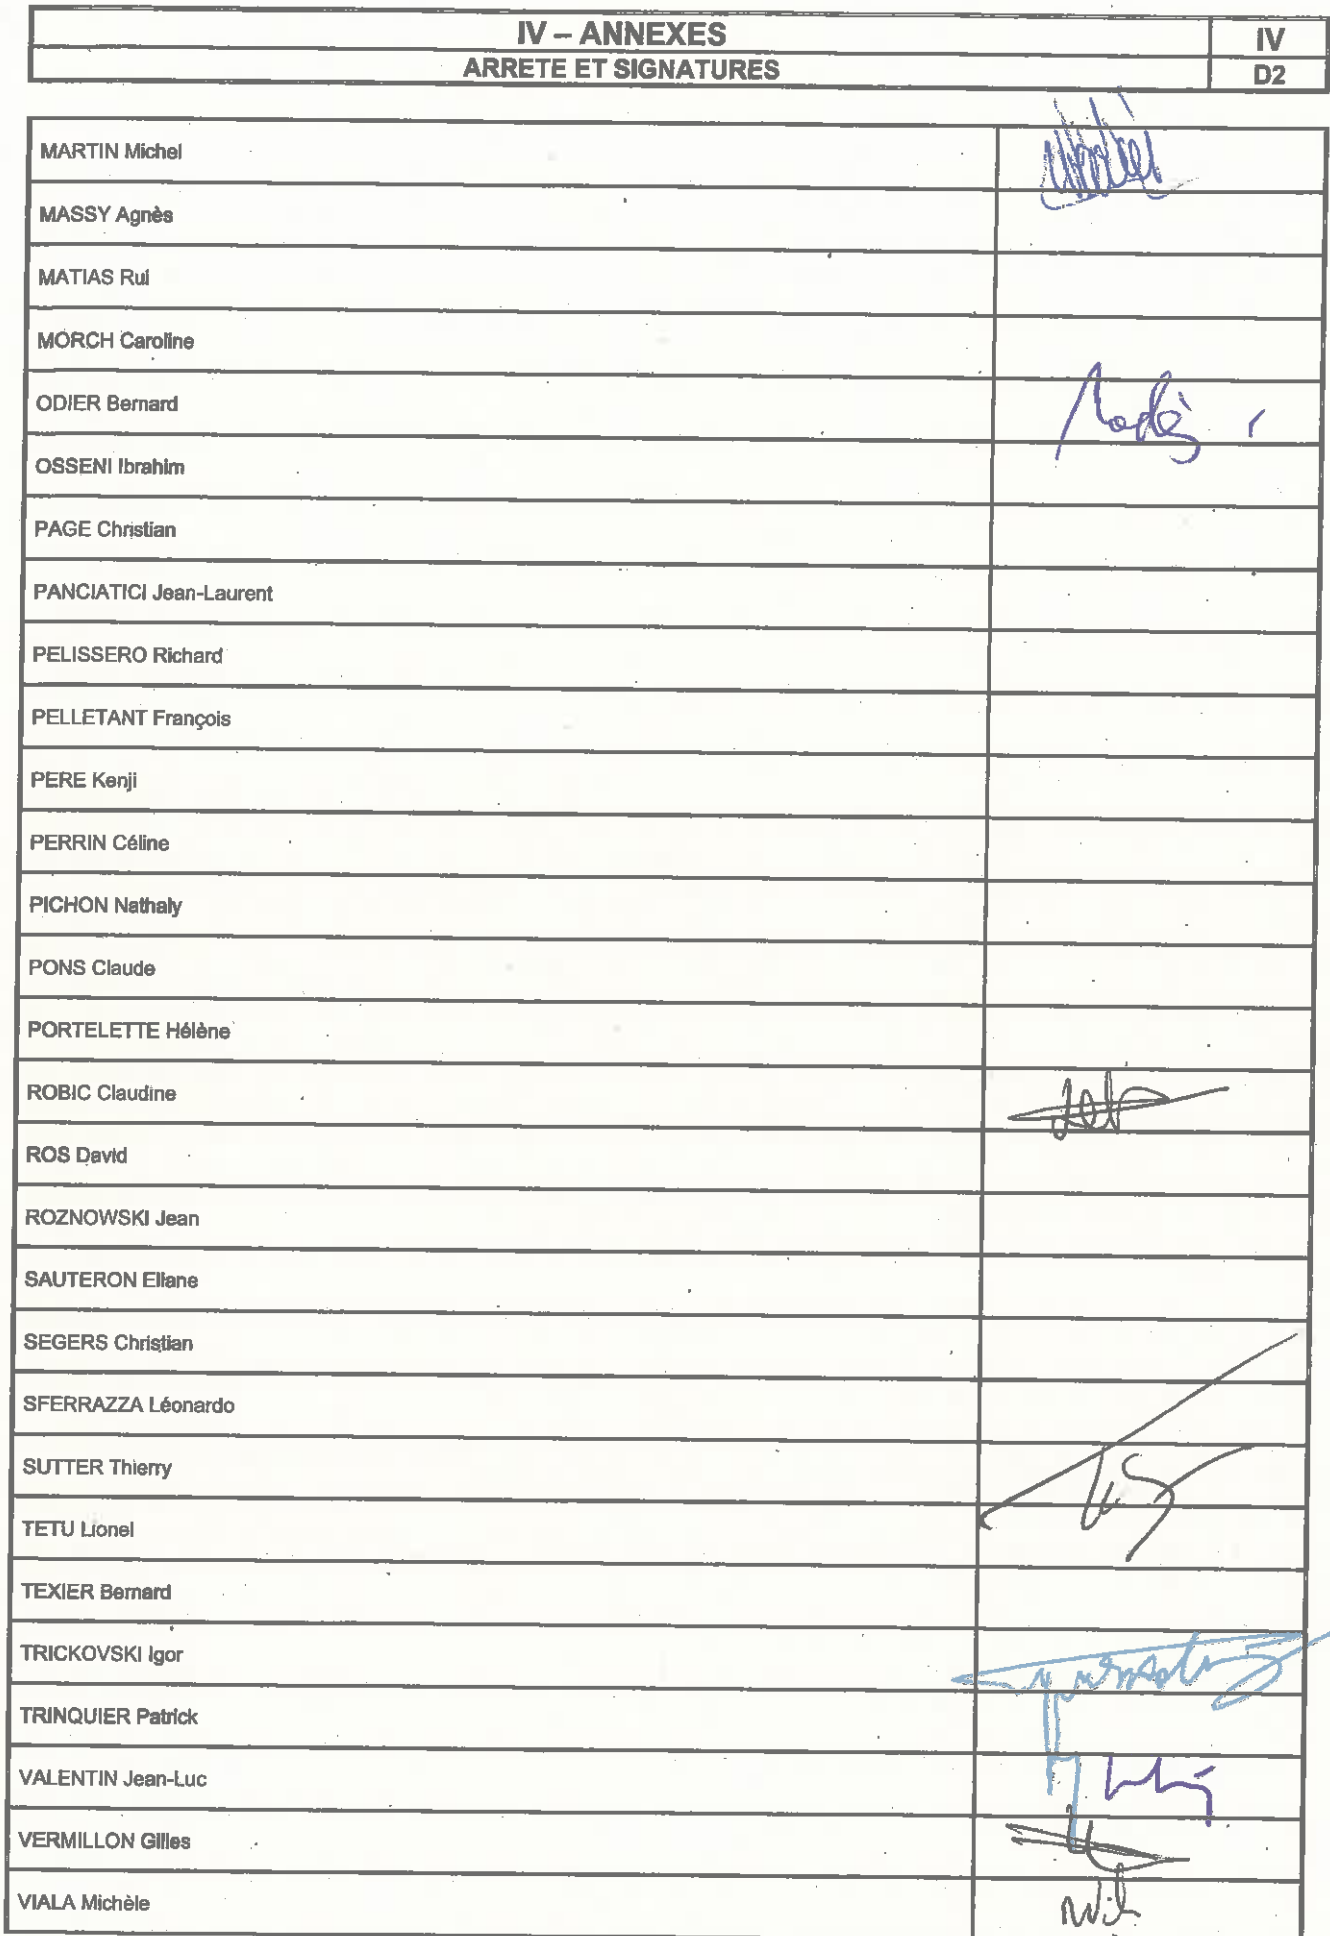 IV – ANNEXES
IV
ARRETE ET SIGNATURES
D2
MARTIN Michel
MASSY Agnès
MATIAS Rui
MORCH Caroline
ODIER Bernard
OSSENI Ibrahim
PAGE Christian
PANCIATICI Jean-Laurent
PELISSERO Richard
PELLETANT François
PERE Kenji
PERRIN Céline
PICHON Nathaly
PONS Claude
PORTELETTE Hélène
ROBIC Claudine
ROS David
ROZNOWSKI Jean
SAUTERON Eliane
SEGERS Christian
SFERRAZZA Léonardo
SUTTER Thierry
TETU Lionel
TEXIER Bernard
TRICKOVSKI Igor
TRINQUIER Patrick
VALENTIN Jean-Luc
VERMILLON Gilles
VIALA Michèle